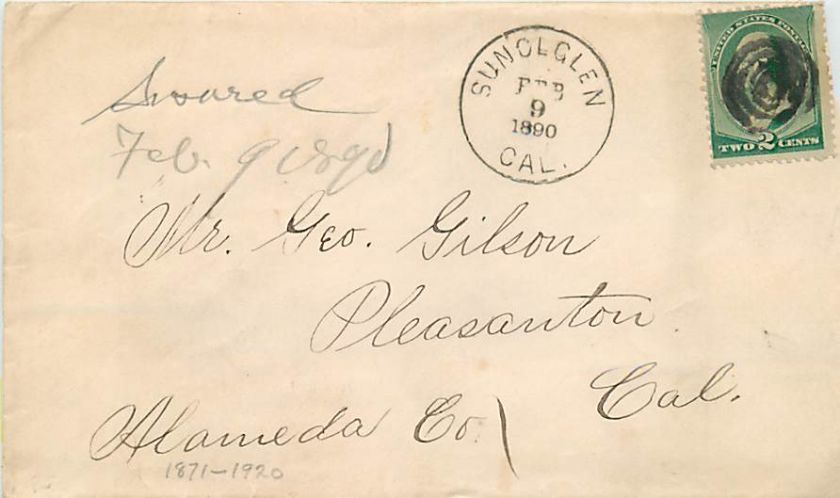 SUNOLGLEN
FEB
9
1890
CAL.
UNITED STATES POSTAGE
TWO 2 CENTS
Feb. 9 1890
Mr. Geo. Gilson
Pleasanton
Cal.
Alameda Co.
1871-1920